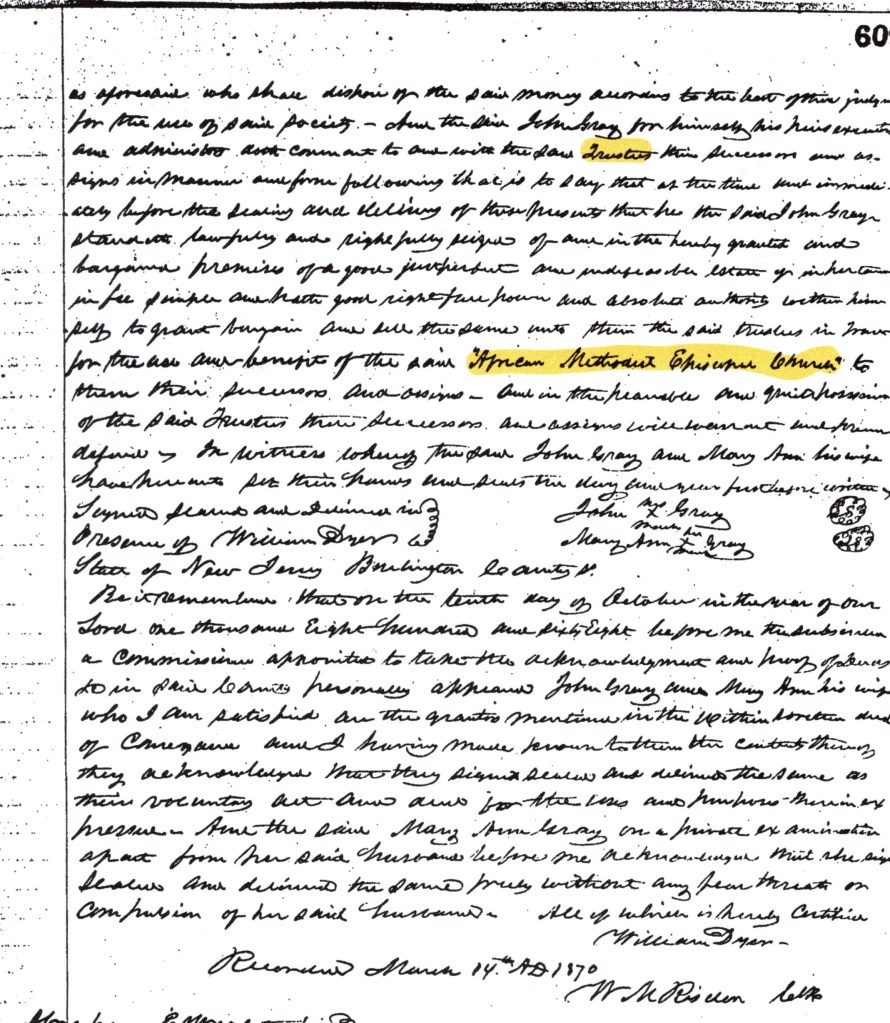 609
as aforesaid who shall dispose of the said money according to the best of their judgm
for the use of said society. – And the said John Gray for himself his heirs execut
and administors doth covenant to and with the said Trustees their successors and as-
signs in manner and form following that is to say that at the time and immedi-
ately before the sealing and delivery of these presents that he the said John Gray
standeth lawfully and rightfully seized of and in the hereby granted and
bargained premises of a good just perfect and indefeasible estate of inheritance
in fee simple and hath good right full power and absolute authority within him
self to grant bargain and sell the same unto them the said trustees in trust
for the use and benefit of the said "African Methodist Episcopal Church" to
them their successors and assigns – and in the peaceable and quiet possession
of the said Trustees their successors and assigns will warrant and forever
defend – In witness whereof the said John Gray and Mary Ann his wife
have hereunto set their hands and seals the day and year first before written
Signed sealed and delivered in
Presence of William Dyer
John his X mark Gray
Mary Ann her X mark Gray
State of New Jersey Burlington County ss.
Be it remembered that on the tenth day of October in the year of our
Lord one thousand Eight hundred and sixty Eight before me the subscriber
a Commissioner appointed to take the acknowledgment and proof of Deeds
in said County personally appeared John Gray and Mary Ann his wife
who I am satisfied are the grantors mentioned in the within written deed
of Conveyance and I having made known to them the contents thereof
they acknowledged that they signed sealed and delivered the same as
their voluntary act and deed for the uses and purposes therein ex
pressed – And the said Mary Ann Gray on a private examination
apart from her said husband before me acknowledged that she sign
Sealed and delivered the same freely without any fear threats or
Compulsion of her said husband – All of which is hereby Certified
William Dyer –
Recorded March 14th AD 1870
W M Risdon Clk